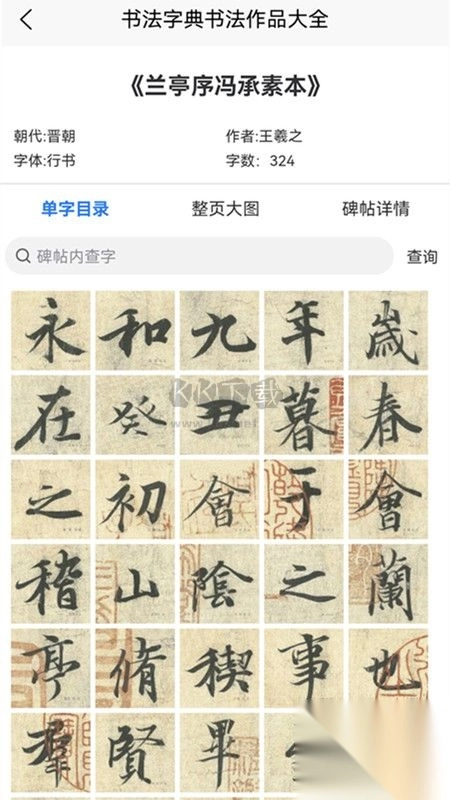 书法字典书法作品大全
《兰亭序冯承素本》
朝代:晋朝 作者:王羲之
字体:行书 字数：324
单字目录 整页大图 碑帖详情
碑帖内查字 查询
永 和 九 年 歲
在 癸 丑 暮 春
KK下载
之 初 會 于 會
稽 山 陰 之 蘭
亭 脩 稧 事 也
羣 賢 畢